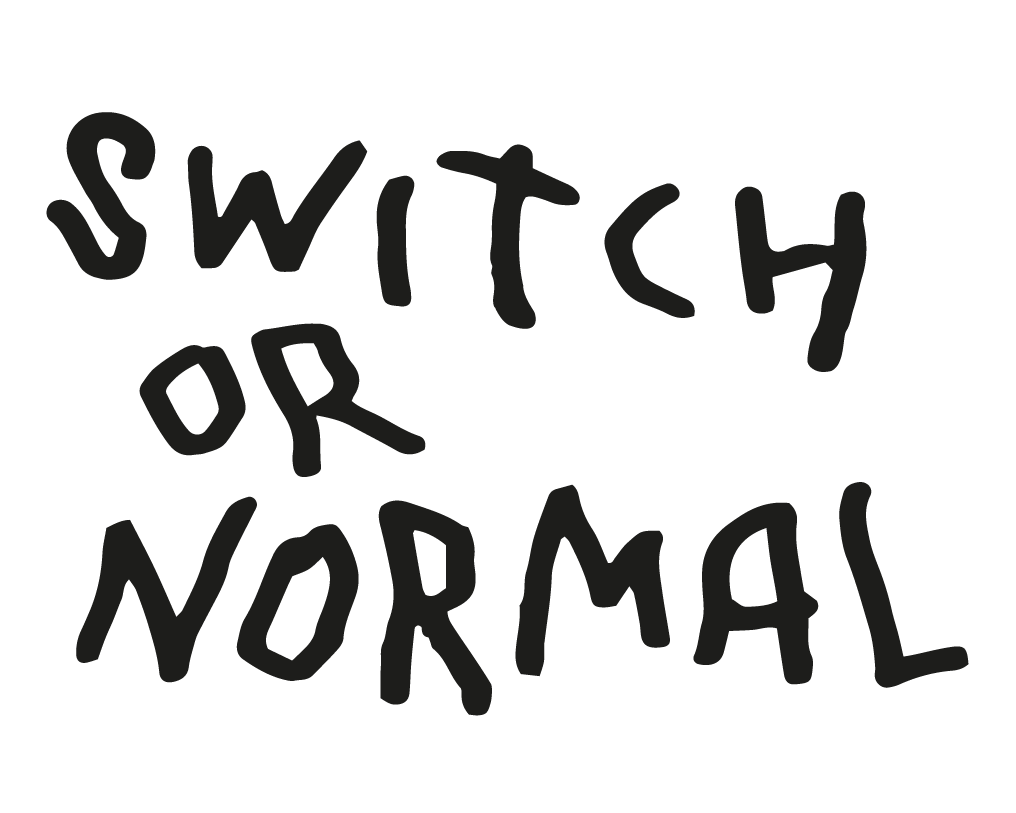 SWITCH
OR
NORMAL